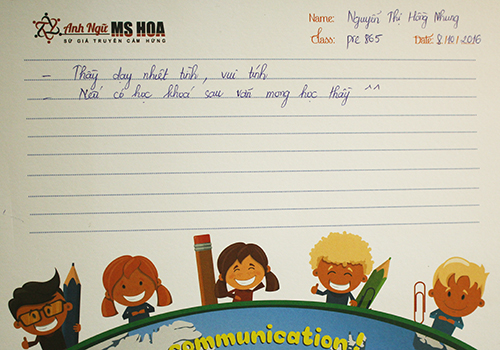 Anh Ngữ MS HOA
SỨ GIẢ TRUYỀN CẢM HỨNG
Name: Nguyễn Thị Hồng Nhung
Class: pre 865 Date: 8/10/2016
- Thầy dạy nhiệt tình, vui tính
- Nếu có học khoá sau vẫn mong học thầy ^^
communication!